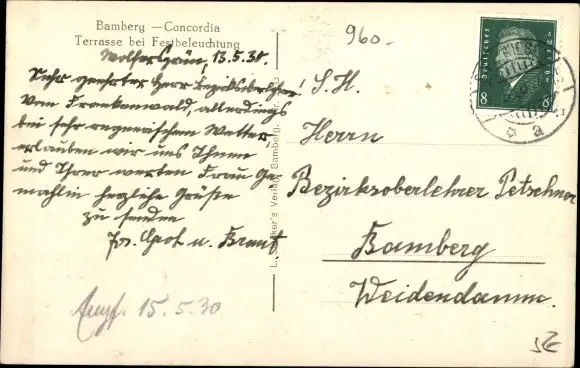 Bamberg — Concordia
Terrasse bei Festbeleuchtung
13.5.30.
Sehr geehrter Herr Bezirksoberlehrer!
Vom Frankenwald, allerdings
bei sehr regnerischem Wetter
erlauben wir uns Ihnen
und Ihrer werten Frau Ge-
mahlin herzliche Grüße
zu senden
u. Brandt
15.5.30
960.-
S. H.
Herrn
Bezirksoberlehrer Petschner
Bamberg
Weidendamm.
Verlag, Bamberg.
Deutsches Reich
8 8
a